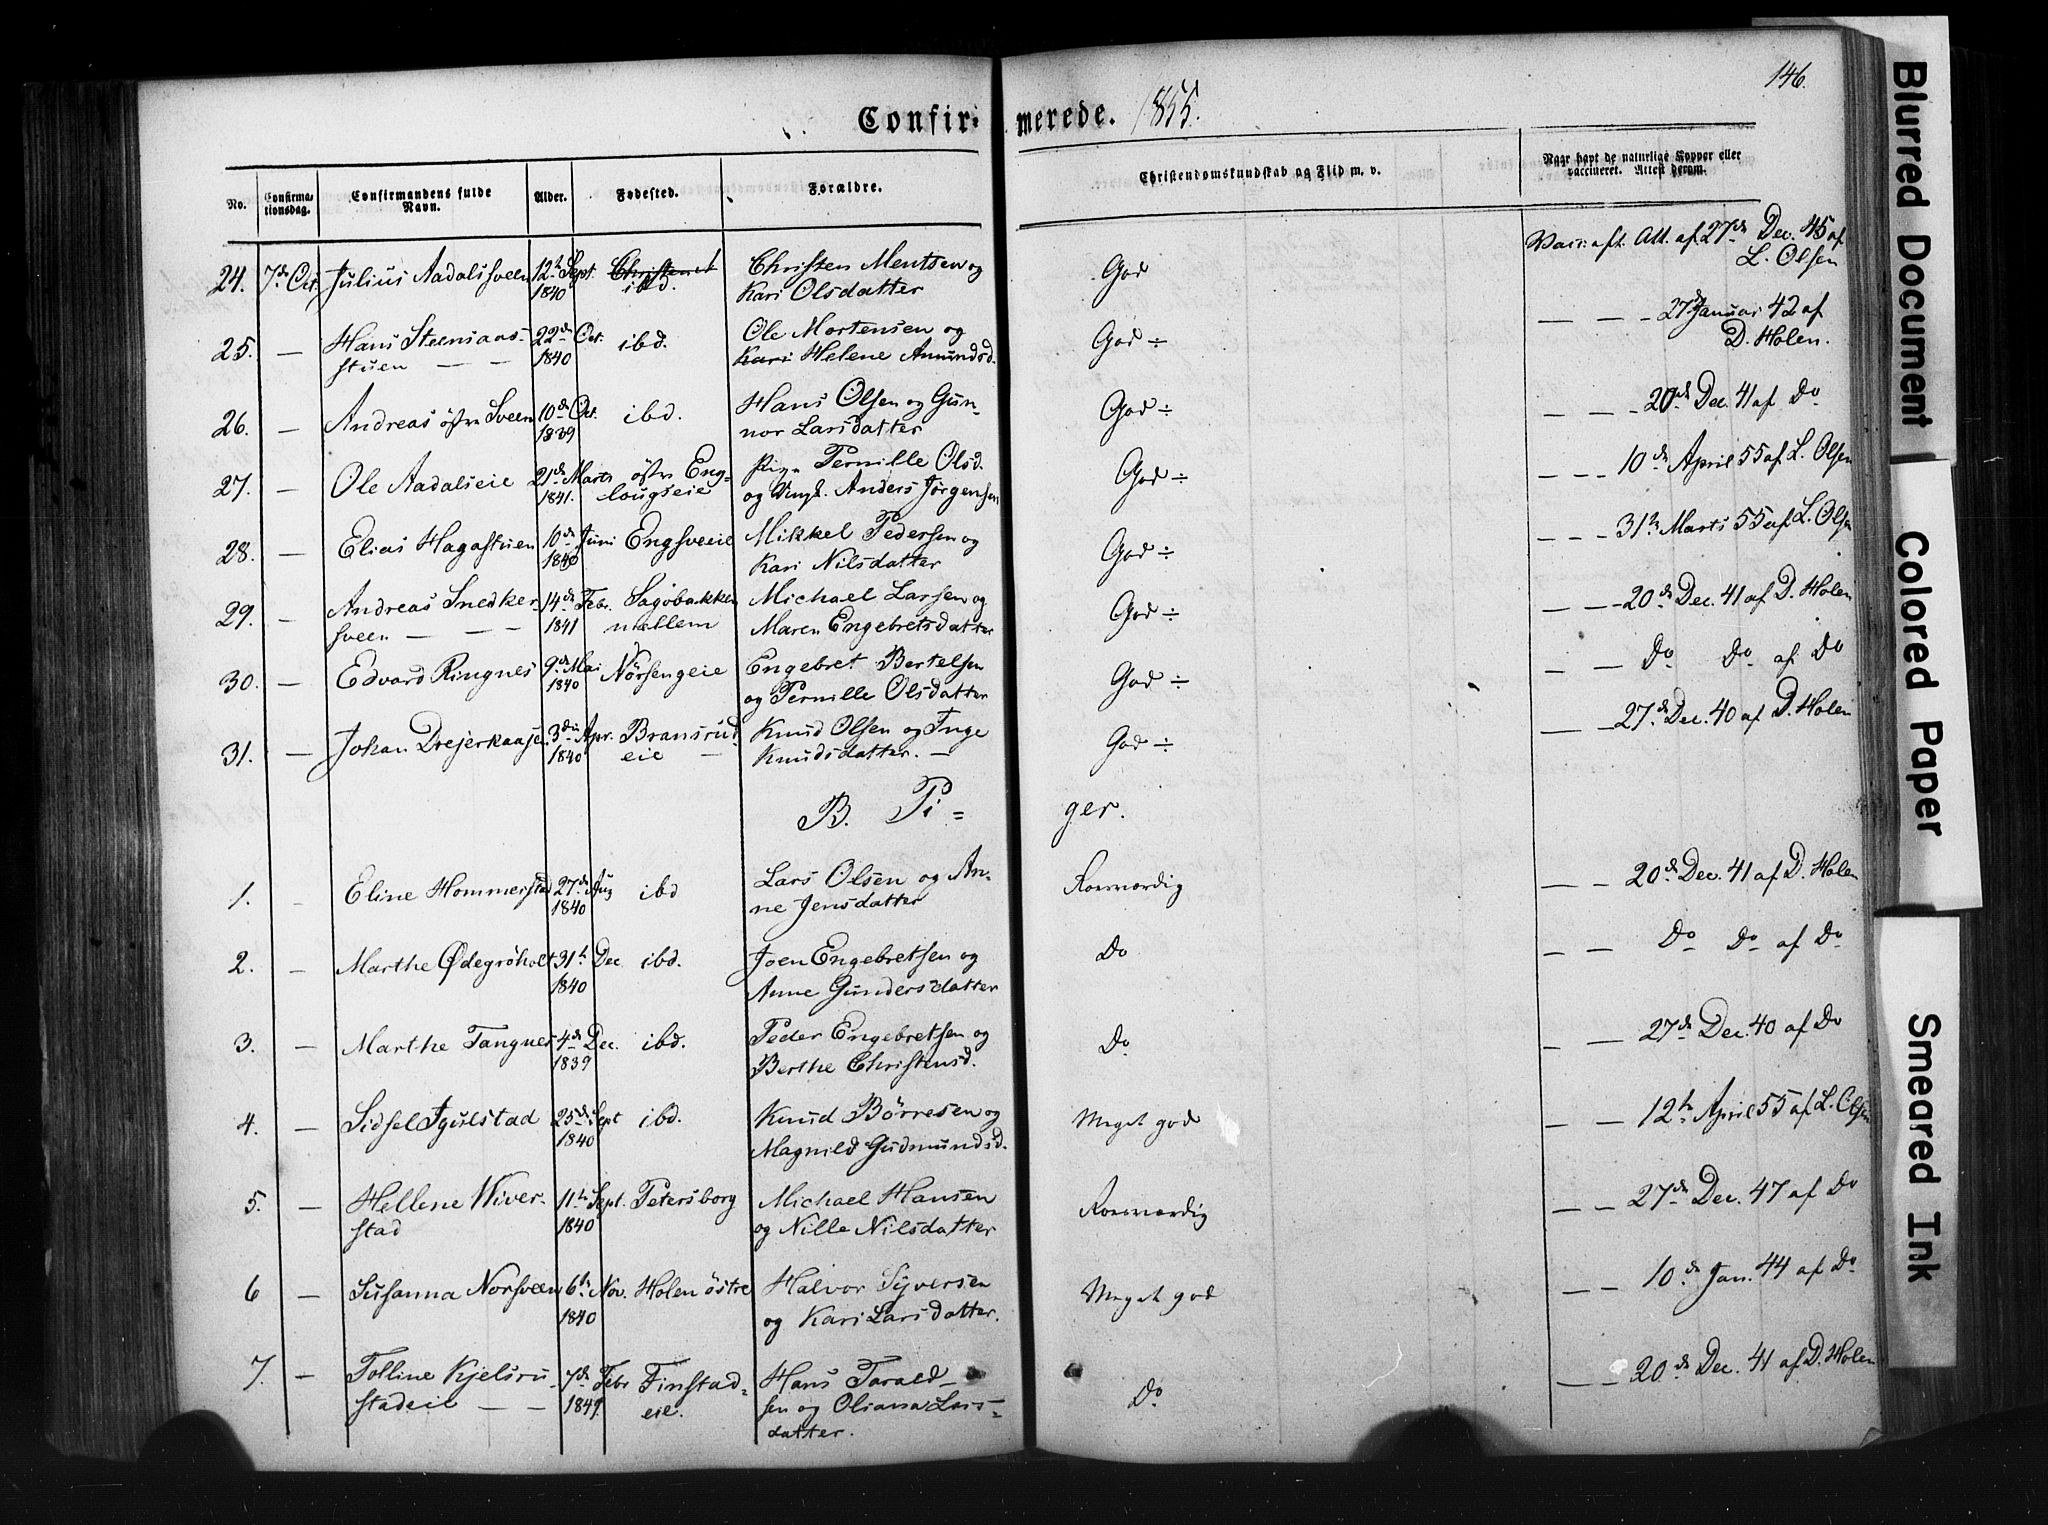 146.
Confirmerede. 1855.
No. Confirmationsdag. Confirmandens fulde Navn. Alder. Fødested. Forældre. Christendomskundskab og Flid m. v. Naar havt de naturlige Kopper eller vaccineret. Attest derom.
24. 7de Oct. Julius Aadalssveen 12te Sept. 1840 ibd. Christen Mentsen og Kari Olsdatter God Vacc. aft. Att. af 27de Dec. 45 af L. Olsen
25. — Hans Steensaasstuen — — 22de Oct. 1840 ibd. Ole Mortensen og Kari Helene Amundsd. God ÷ — — — 27de Januar 42 af D. Holen.
26. — Andreas østre Sveen 10de Oct. 1839 ibd. Hans Olsen og Gunnor Larsdatter God ÷ — — — 20de Dec. 41 af Do
27. — Ole Aadalseie 21de Marts 1841. østre Englougseie Pige Pernille Olsd. og Ungk. Anders Jørgensen God ÷ — — — 10de April 55 af L. Olsen
28. — Elias Hagastuen 10de Juni 1840 Engsveeie Mikkel Pedersen og Kari Nilsdatter God ÷ — — — 31te Marts 55 af L. Olsen
29. — Andreas Snedkersveen — — — 14de Febr. 1841 Sagbakken mellem Michael Larsen og Maren Engebretsdatter God ÷ — — — 20de Dec. 41 af D. Holen
30. — Edvard Ringnes 9de Mai 1840 Nørsengeie Engebret Bertelsen og Pernille Olsdatter God ÷ — — Do Do af Do
31. — Johan Drejerkaasen 3die Apr. 1840 Bransrudeie — Knud Olsen og Inge Knudsdatter. — God ÷ — 27de Dec. 40 af D. Holen
B. Piger.
1. — Eline Hommerstad 27de Aug 1840 ibd Lars Olsen og Anne Jensdatter Roesværdig — — 20de Dec. 41 af D. Holen
2. — Marthe Ødegrøholt 31te Dec 1840 ibd. Joen Engebretsen og Anne Gundersdatter Do — — Do Do af Do
3. — Marthe Tangnes 4de Dec. 1839 ibd. Peder Engebretsen og Berthe Christensd. Do — — 27de Dec. 40 af Do
4. — Sidsel Igulstad 25de Sept 1840 ibd. Knud Børresen og Magnild Gudmundsd. Meget god — — 12te April 55 af L. Olsen
5. — Hellene Wiverstad 11te Sept. 1840 Petersborg Michael Hansen og Nille Nilsdatter Roesværdig — — 27de Dec. 47 af Do
6 — Susanna Norsveen 6te Nov. 1840 Holen østre Halvor Syversen og Kari Larsdatter. Meget god — — 10de Jan. 44 af Do
7. — Tolline Kjelsrustadeie — — 7de Febr 1841. Finstadeie. Hans Taraldsen og Oliana Larsdatter. Do — — 20de Dec. 41 af D. Holen
Blurred Document
Colored Paper
Smeared Ink